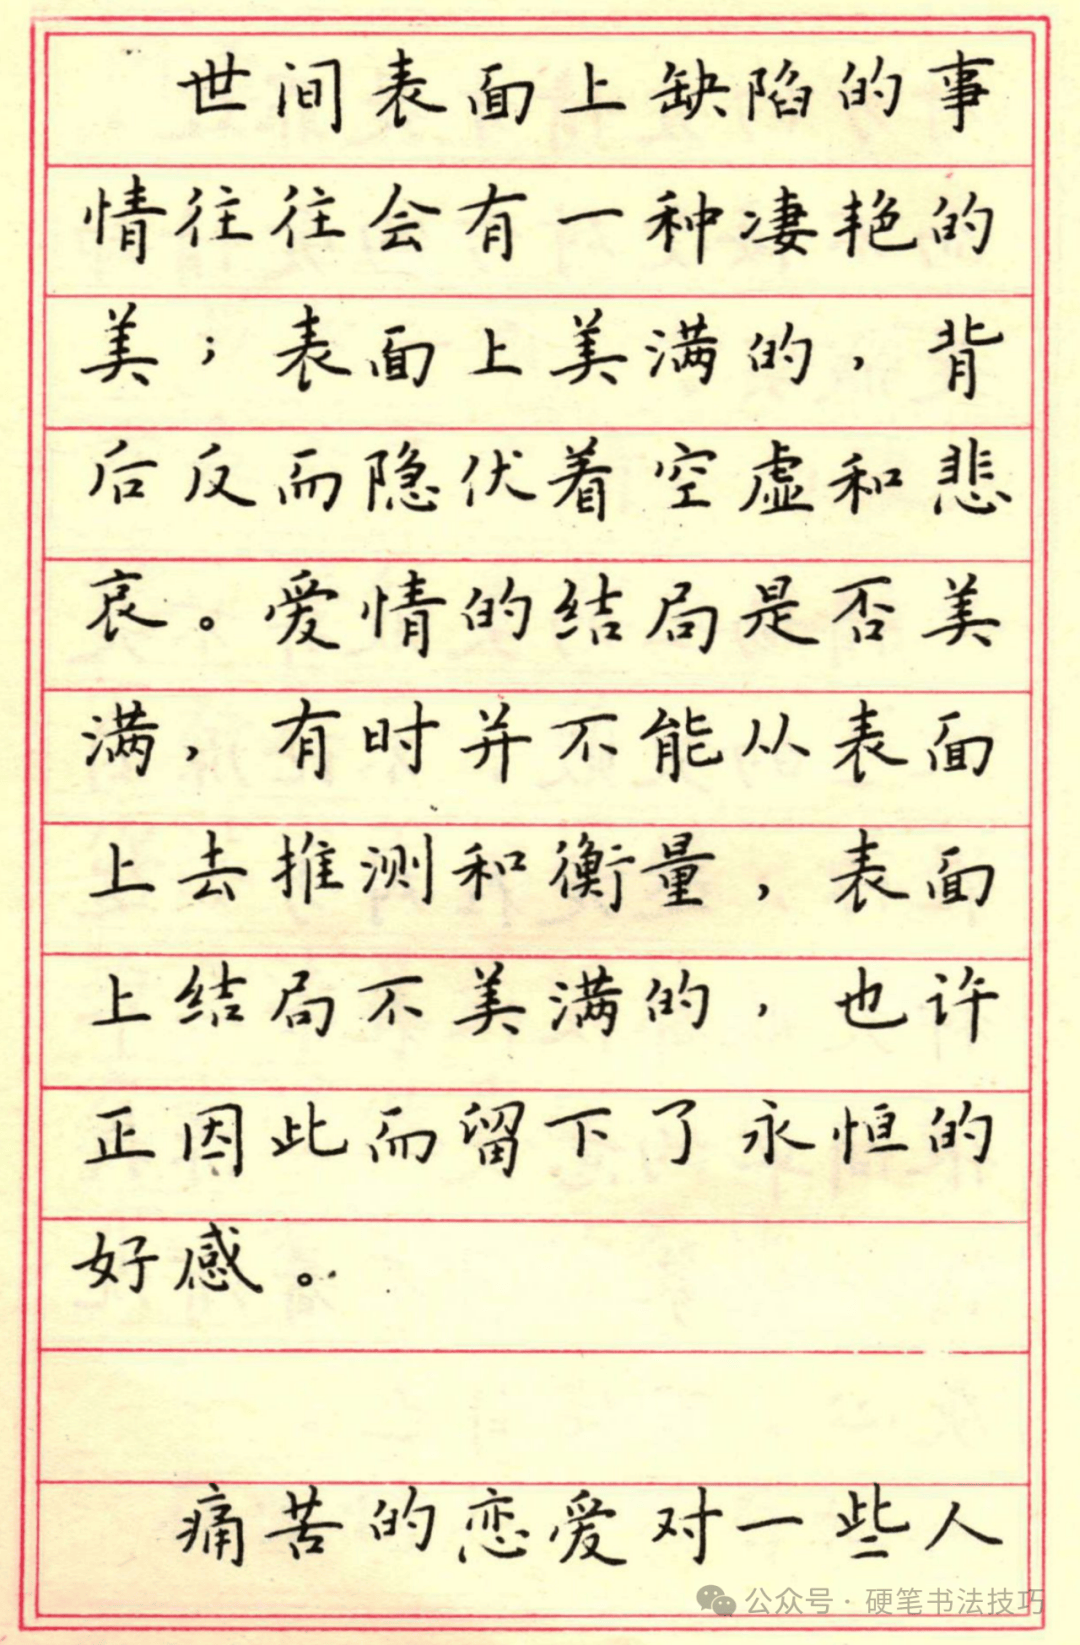 世间表面上缺陷的事
情往往会有一种凄艳的
美；表面上美满的，背
后反而隐伏着空虚和悲
哀。爱情的结局是否美
满，有时并不能从表面
上去推测和衡量，表面
上结局不美满的，也许
正因此而留下了永恒的
好感。
痛苦的恋爱对一些人
公众号·硬笔书法技巧